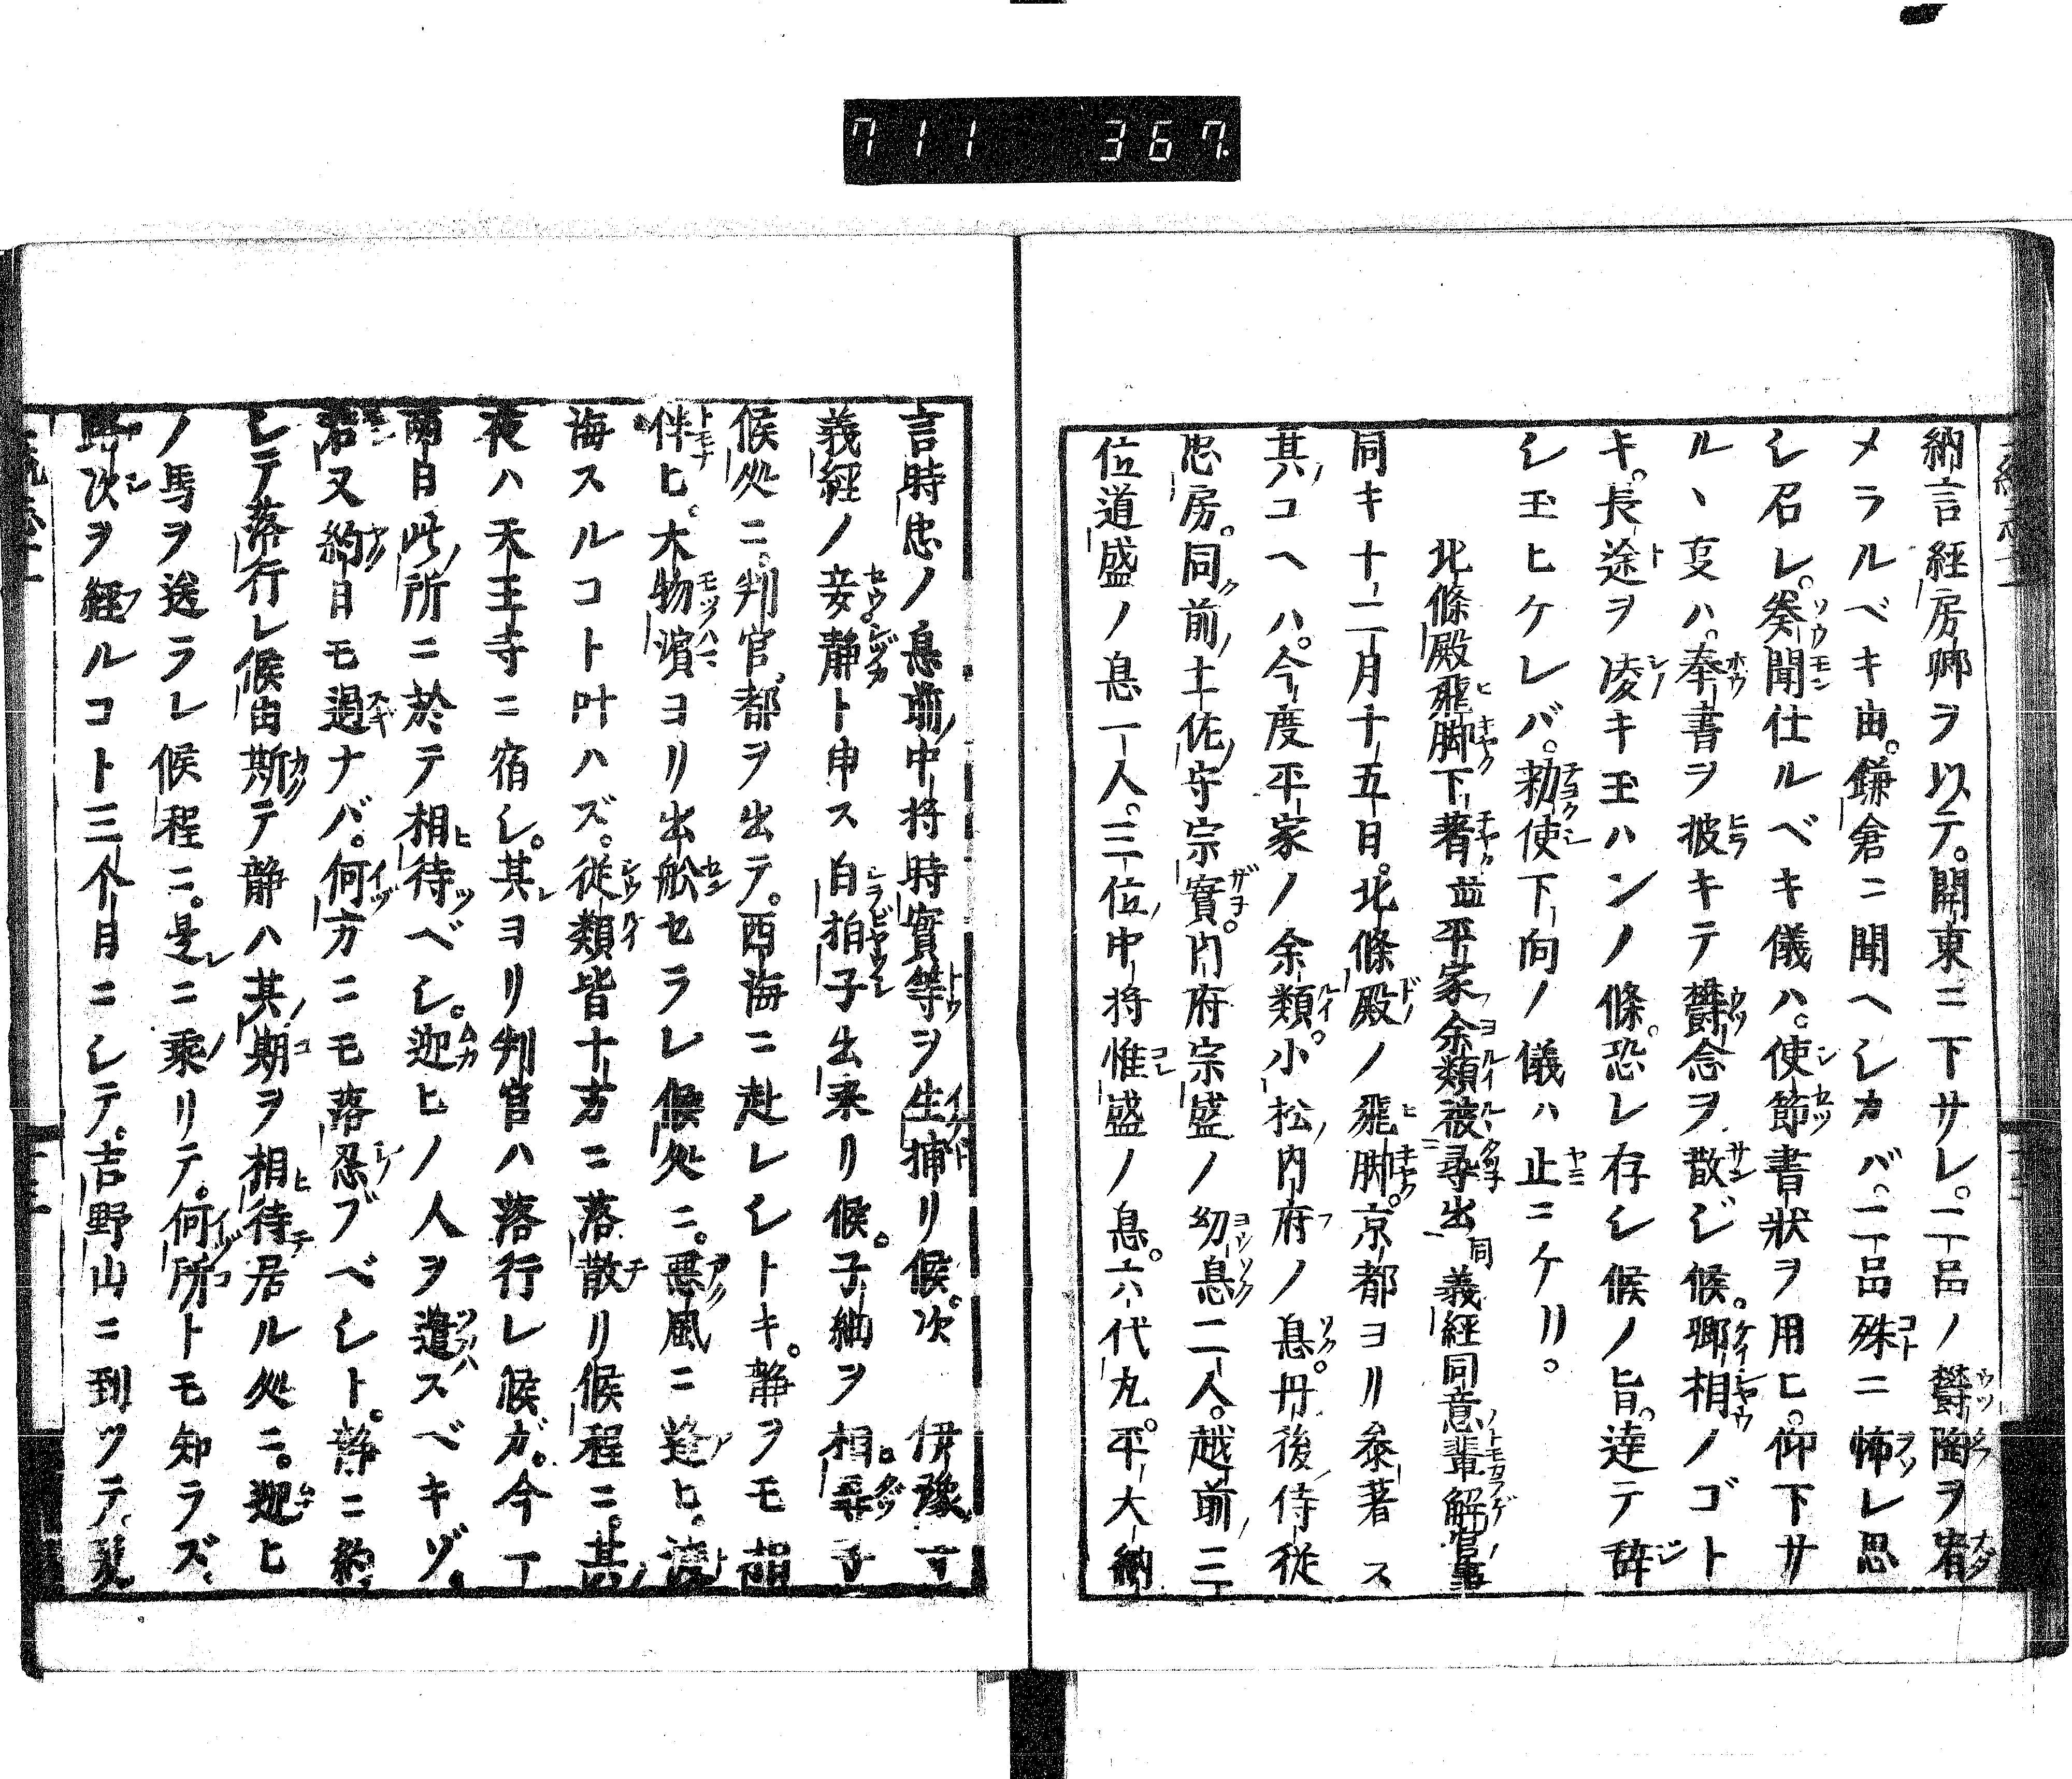 711 367.
納言経房卿ヲ以テ。関東ニ下サレ。二品ノ欝陶ヲ宥
メラルベキ由。鎌倉ニ聞ヘシカバ。二品殊ニ怖レ思
シ召レ。奏聞仕ルベキ儀ハ。使節書状ヲ用ヒ。仰下サ
ルヽ支ハ。奉書ヲ披キテ欝念ヲ散ジ候。卿相ノゴト
キ。長途ヲ凌キ玉ハンノ條。恐レ存シ候ノ旨。達テ辞
シ玉ヒケレバ。勅使下向ノ儀ハ止ニケリ。
北條殿飛脚下著並平家余類被尋出同義経同意輩解官事
同キ十二月十五日。北條殿ノ飛脚。京都ヨリ参著ス
其コヘハ。今度平家ノ余類。小松内府ノ息。丹後侍従
忠房。同前土佐守宗實。内府宗盛ノ幼息二人。越前三
位道盛ノ息一人。三位中将惟盛ノ息。六代丸。平大納
言時忠ノ息前中将時實等ヲ生捕リ候。次 伊豫
義経ノ妾静ト申ス白拍子出来リ候。子細ヲ相尋
候処ニ。判官都ヲ出テ。西海ニ赴レシトキ。静ヲモ相
伴ヒ。大物濵ヨリ出舩セラレ候処ニ。悪風ニ逢ヒ。渡
海スルコト叶ハズ。従類皆十方ニ落散リ候程ニ。其
夜ハ天王寺ニ宿シ。其ヨリ判官ハ落行レ候ガ。今一
両日此所ニ於テ相待ベシ。迎ヒノ人ヲ遣スベキゾ。
若又約日モ過ナバ。何方ニモ落忍ブベシト。静ニ約
シテ落行レ候由斯テ静ハ其期ヲ相待居ル処ニ。迎ヒ
ノ馬ヲ送ラレ候程ニ。是ニ乗リテ。何所トモ知ラズ
路次ヲ経ルコト三个月ニシテ。吉野山ニ到ツテ。爰